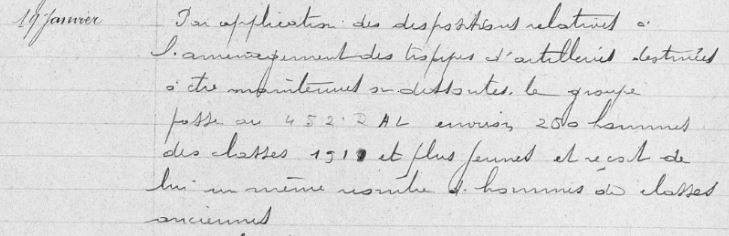 19 Janvier Par application des dispositions relatives à
l'amenagement des troupes d'artilleries destinées
à être maintenues ou dissoutes. le groupe
passe au 452. R A L environ 200 hommes
des classes 191 et plus jeunes et reçoit de
lui un même nombre d'hommes de classes
anciennes